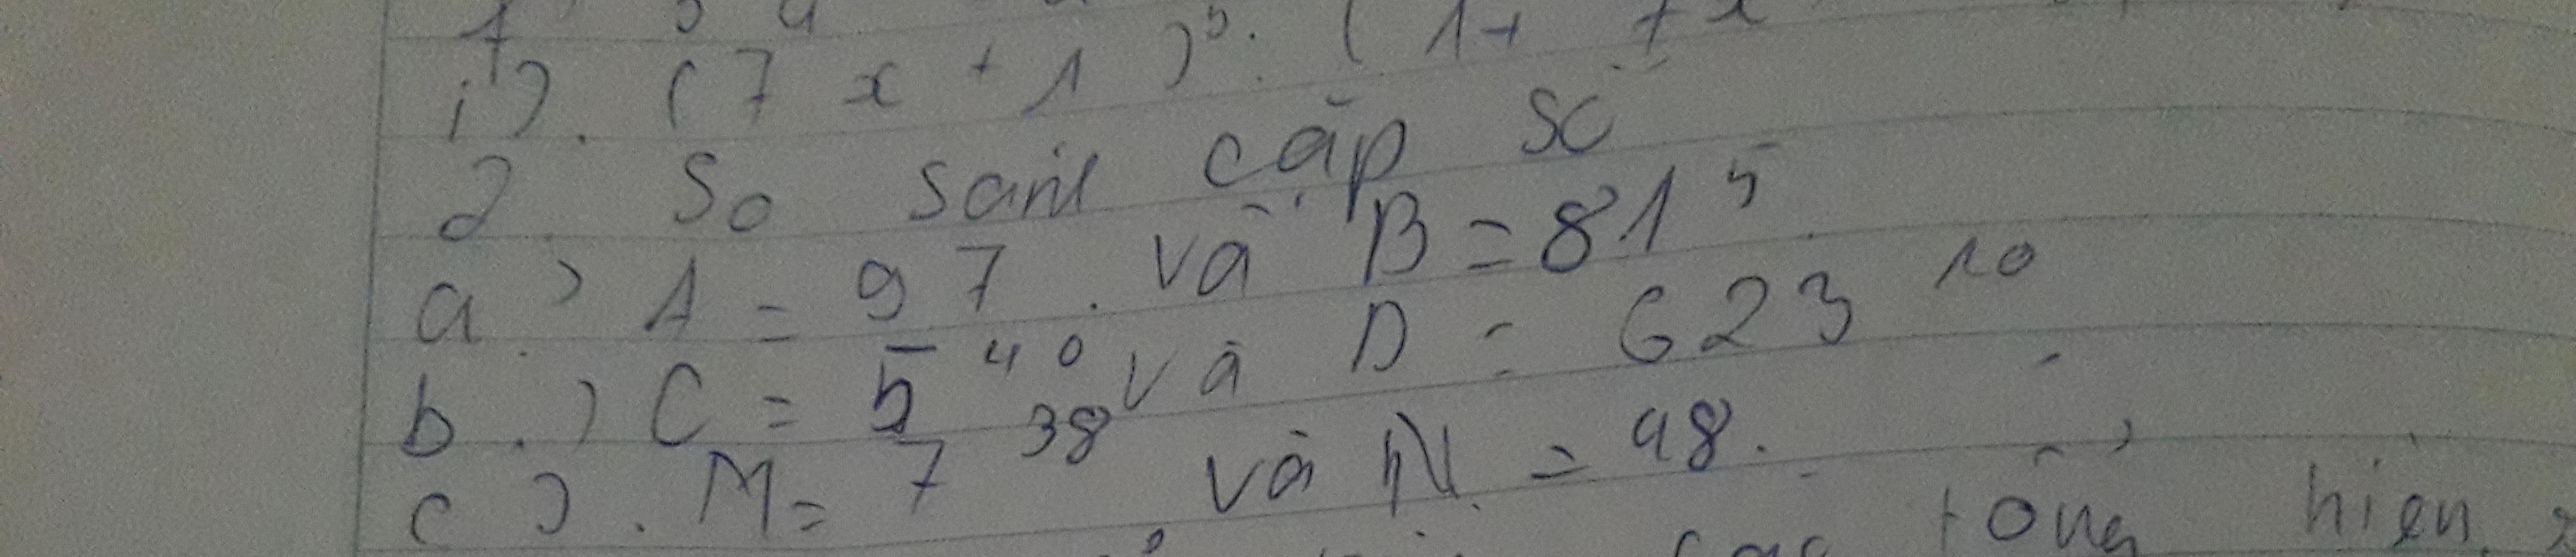 i). (7x + 1)⁵. (1+ 7x
2. So sánh cặp số
a.) A = 97. và B = 81⁵
b.) C = 5⁴⁰ và D = 623¹⁰
c). M = 7³⁸ và N = 48.
tổng hiệu